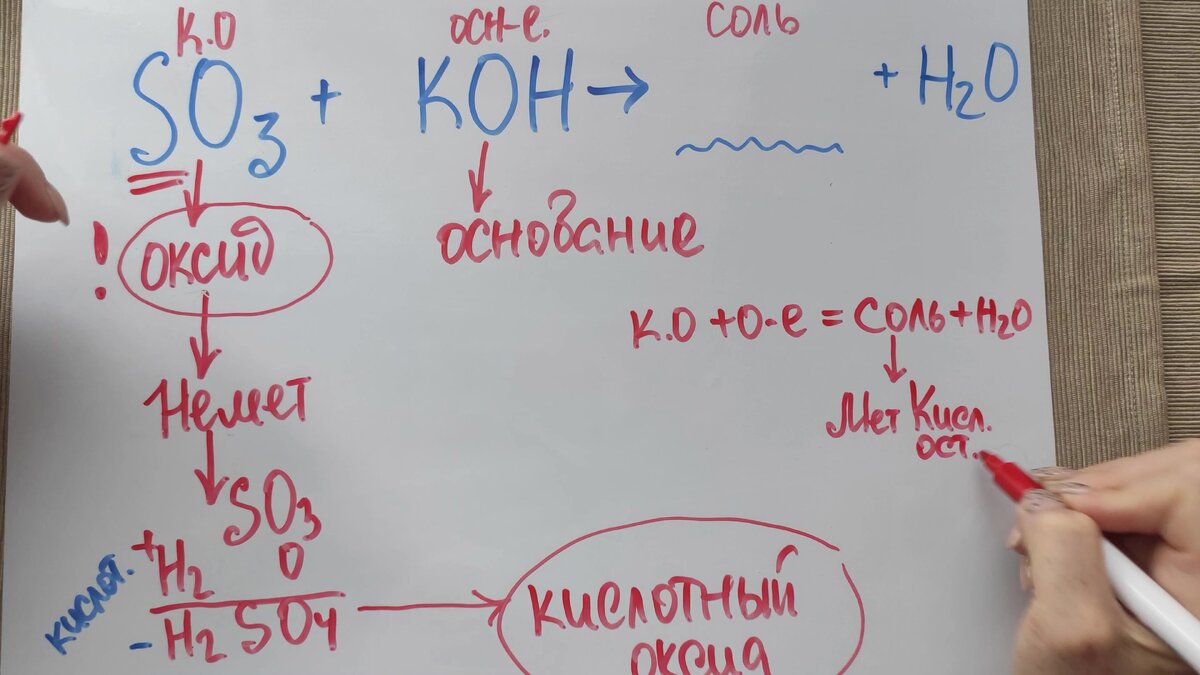 К.О осн-е. соль
SO₃ + KOH → + H₂O
! оксид
основание
К.О + О-е = соль + H₂O
Немет
Мет Кисл.
ост.
SO₃
+ H₂ O
кислот.
- H₂SO₄
кислотный
оксид